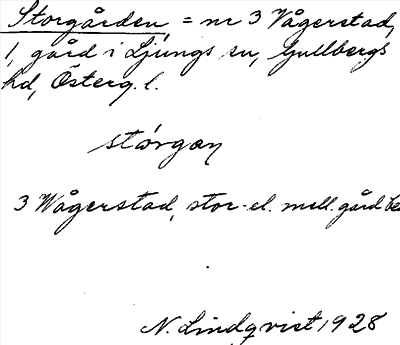 Storgården = nr 3 Vågerstad,
1, gård i Ljungs sn, Gullbergs
hd, Österg. l.
stórgan
3 Wågerstad, stor- el. mell. gård
N. Lindqvist 1928